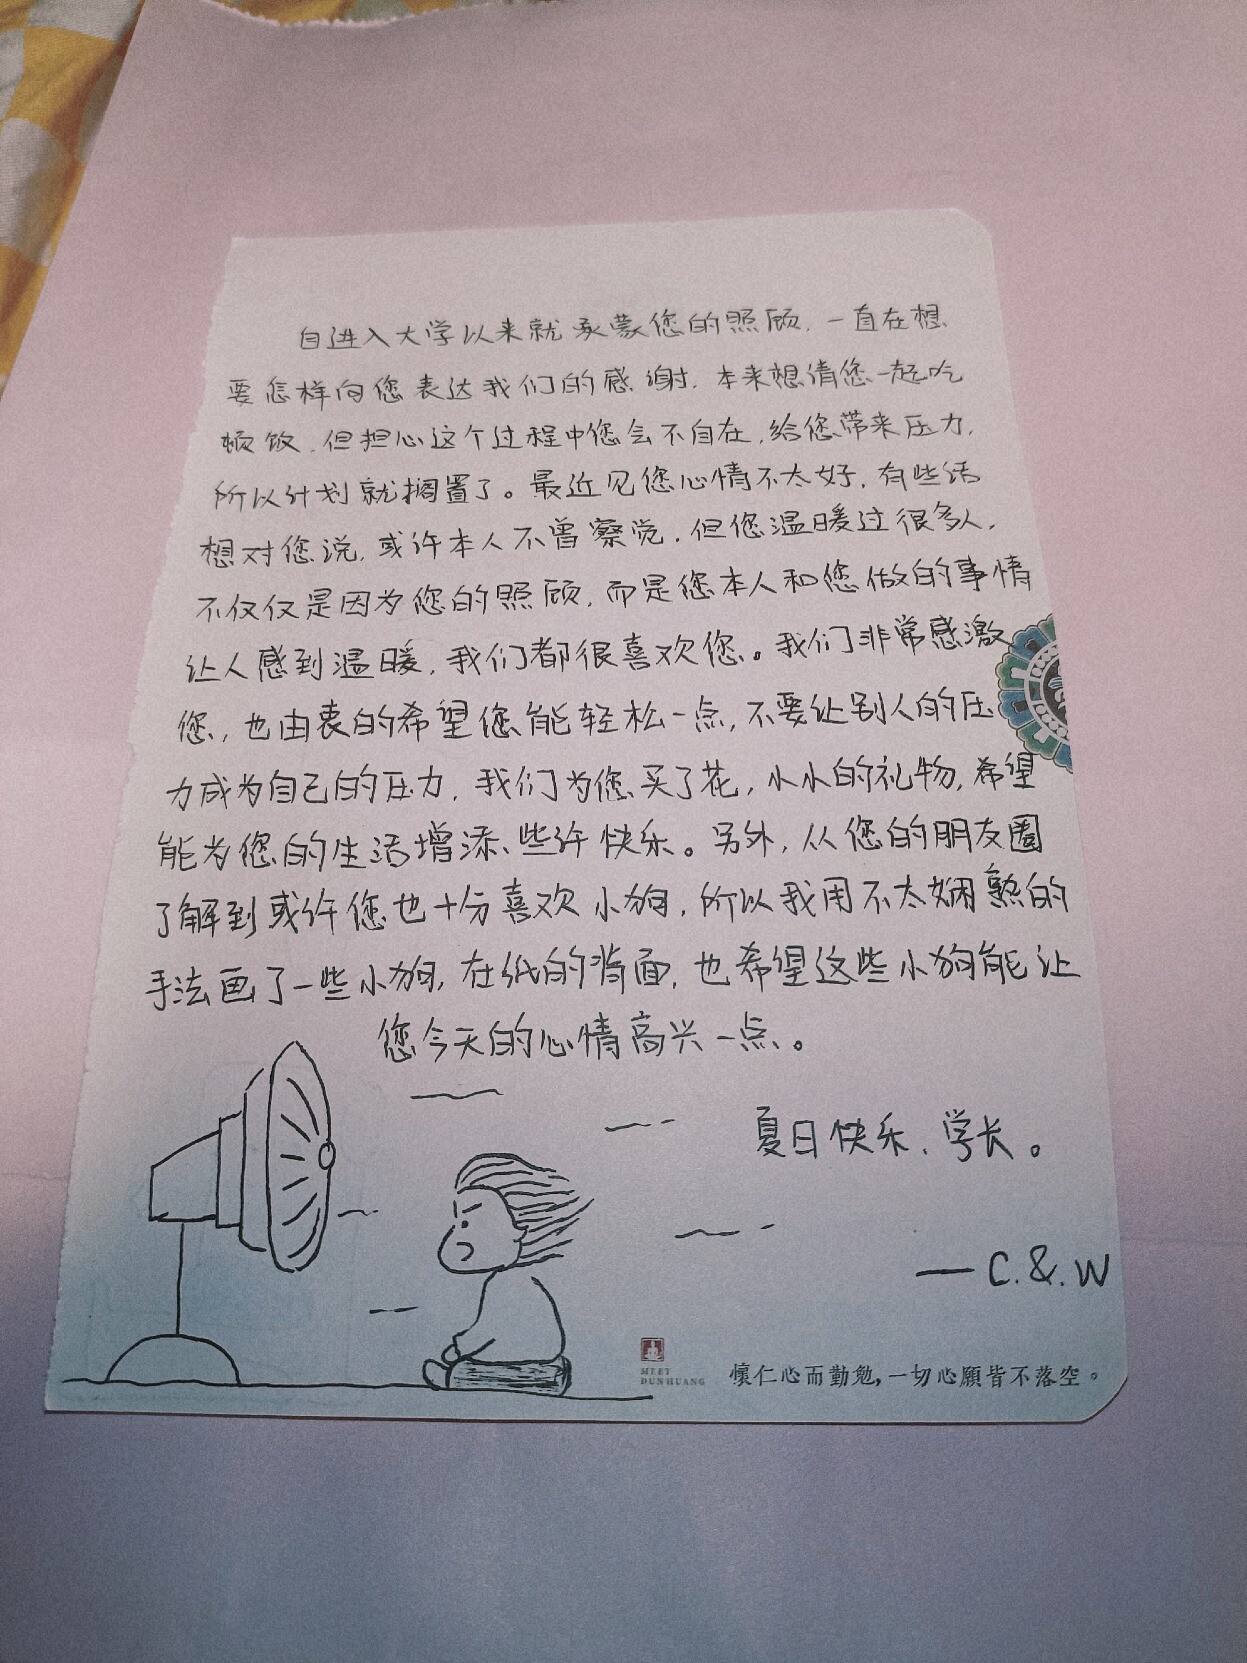 自进入大学以来就承蒙您的照顾，一直在想
要怎样向您表达我们的感谢，本来想请您一起吃
顿饭，但担心这个过程中您会不自在，给您带来压力，
所以计划就搁置了。最近见您心情不太好，有些话
想对您说，或许本人不曾察觉，但您温暖过很多人，
不仅仅是因为您的照顾，而是您本人和您做的事情
让人感到温暖，我们都很喜欢您。我们非常感激
您，也由衷的希望您能轻松一点，不要让别人的压
力成为自己的压力，我们为您买了花，小小的礼物，希望
能为您的生活增添些许快乐。另外，从您的朋友圈
了解到或许您也十分喜欢小狗，所以我用不太娴熟的
手法画了一些小狗，在纸的背面，也希望这些小狗能让
您今天的心情高兴一点。
夏日快乐，学长。
— C.&.W
MEET
DUNHUANG
懷仁心而勤勉，一切心願皆不落空。